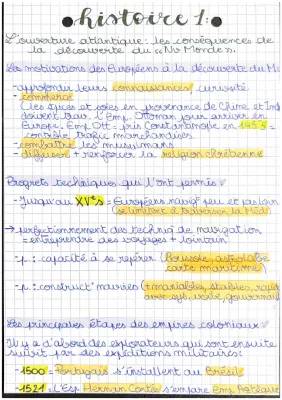 histoire 1:
L'ouverture atlantique: les conséquences de
la découverte du «Nv Monde».
Les motivations des Européens à la découverte du M
- approfondir leurs connaissances, curiosité
- commerce
Les épices et soies en provenance de Chine et Ind
doivent trav. l'Emp. Ottoman pour arriver en
Europe. Emp Ott = pris Constantinople en 1453
= contrôle trafic marchandises
- combattre les musulmans
- diffuser + renforcer la religion chrétienne
Progrès techniques qui l'ont permis
- Jusqu'au XVes = Européens navig peu et
se limitent à traverser la Médi
→ perfectionnement des techni de navigation
= entreprendre des voyages + lointain
-p: capacité à se repérer (Boussole, astrolabe
carte maritime)
-p: construct° navires (+ maniables, stables, rapi
avec voile, gouvernail
Les principales étapes des empires coloniaux
Il y a d'abord des explorateurs qui sont ensuite
suivit par des expéditions militaires:
- 1500 = Portugais s'installent au Brésil
- 1521 = L'Esp Hernan Cortés s'empare Emp Aztèque